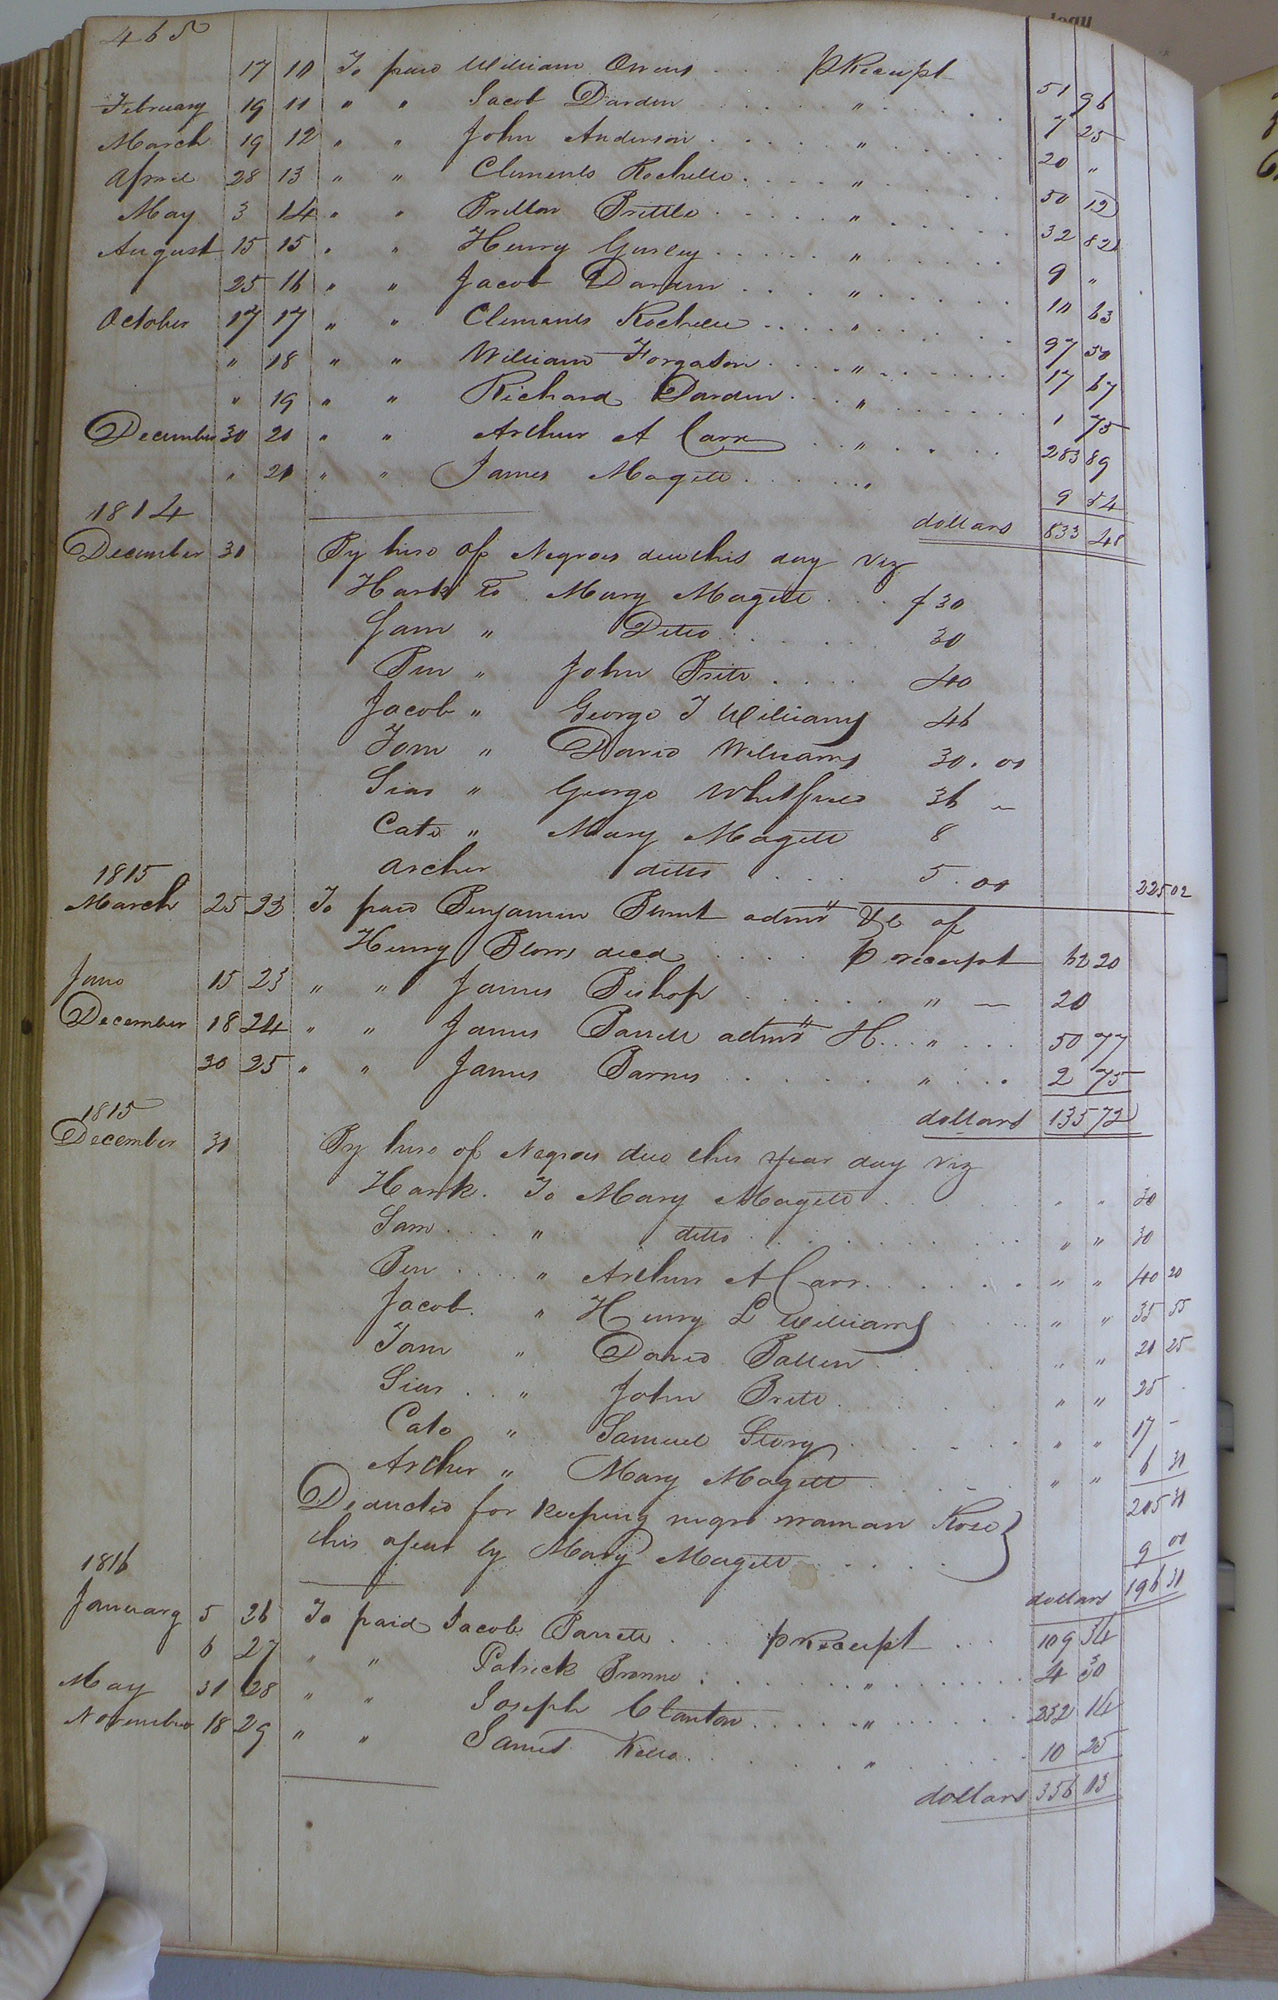 465
17 10 To paid William Owens . . . . P Receipt 51 96
February 19 11 " " Jacob Darden . . . . . " . . . . 7 25
March 19 12 " " John Anderson . . . . . " . . . . 20 "
April 28 13 " " Clements Rochelle . . . . " . . . . 50 12
May 3 14 " " Britton Brittle . . . . . " . . . . 32 82
August 15 15 " " Henry Gurley . . . . . " . . . . 9 "
25 16 " " Jacob Darden . . . . " . . . . 10 63
October 17 17 " " Clements Rochelle . . . . " . . . . 97 50
" 18 " " William Forgason . . . . " . . . . 17 67
" 19 " " Richard Darden . . . " . . . . 1 75
December 30 20 " " Arthur A Carr . . " . . . . 283 89
" 21 " " James Magett . . . . . " 9 84
1814 dollars 833 48
December 30 By hire of Negroes due this day viz
Hark to Mary Magett . . . $ 30
Sam " Ditto . . . . . 30
Ben " John Britt . . . . 40
Jacob " George T Williams 46
Tom " David Williams 30 . 00
Sias " George Whitfield 36 –
Cato " Mary Magett 8
Archer ditto . . . 5 . 00
1815 225 02
March 25 22 To paid Benjamin Blunt admr &c of
Henry Blow decd . . . . P receipt 62 20
June 15 23 " " James Bishop . . . . . " – 20
December 18 24 " " James Barrett admr H . . . " . . . 50 77
30 25 " " James Barnes . . . . . " . . . 2 75
1815 dollars 135 72
December 30 By hire of Negroes due this year day viz
Hark . To Mary Magett . . . . " " 30
Sam . . . " ditto . . . . . . " " 30
Ben . . . . " Arthur A Carr . . . . . . " " 40 20
Jacob . " Henry L Williams . . . " " 35 55
Tom " David Batten . . . . " " 20 25
Sias . . . " John Britt . . . . " " 25 .
Cato " Samuel Story . . . . " " 17 –
Archer " Mary Magett . . . . " " 6 31
205 31
Deducted for keeping negro woman Rose }
this year by Mary Magett . . . . 9 00
1816 dollars 196 31
January 5 26 To paid Jacob Barrett . . . P Receipt . . . 109 34
6 27 " " Patrick Browne . . . . . " . . . . 4 30
May 31 28 " " Joseph Clanton . . . . . " . . . . 232 14
November 18 29 " " Samuel Kello . . . . " . . . . 10 25
dollars 356 03